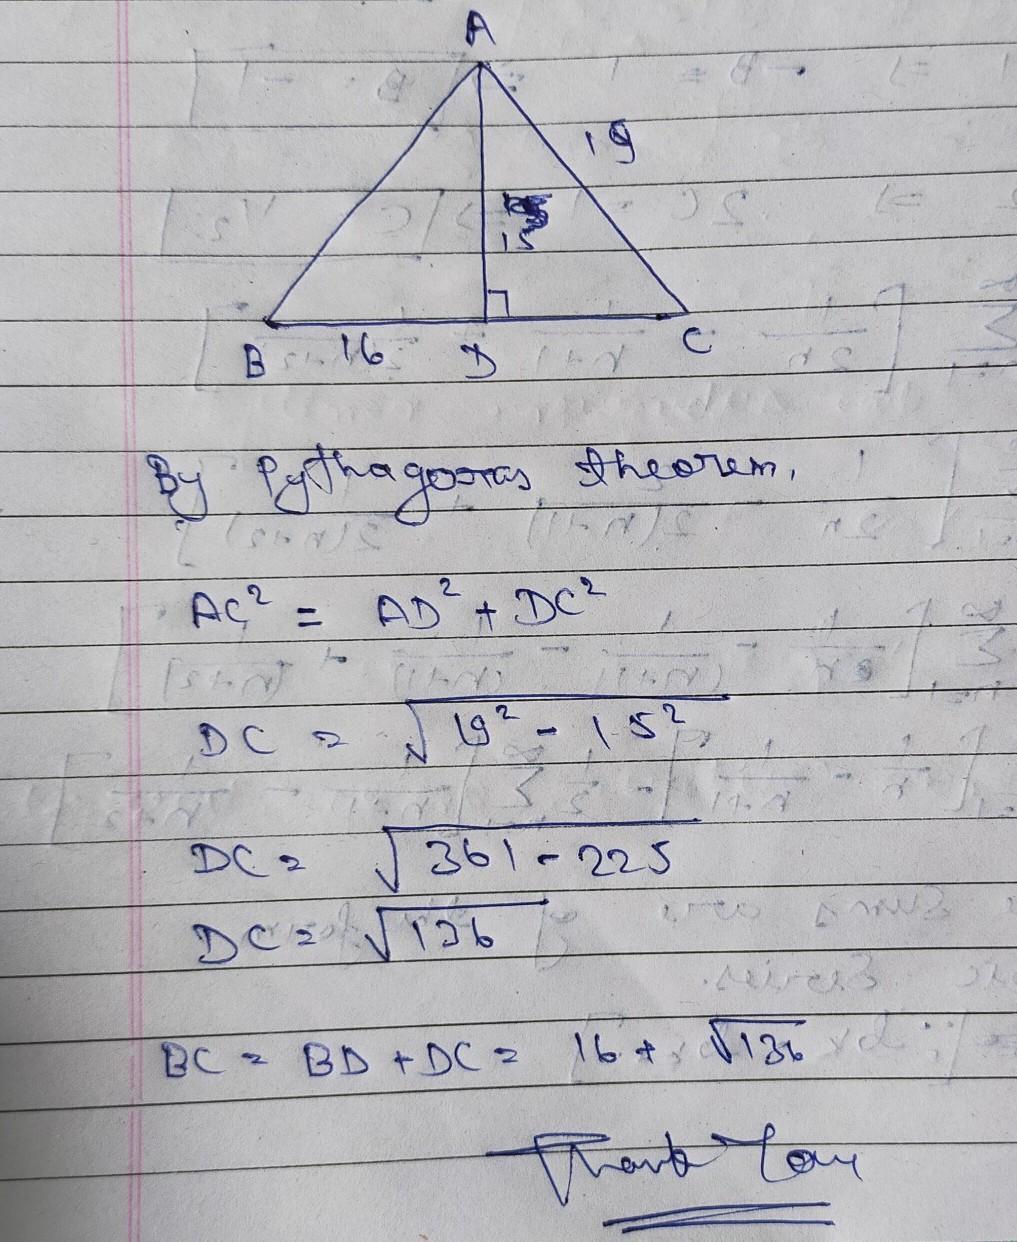 A
19
15
B 16 D C
By Pythagoras theorem,
AC² = AD² + DC²
DC = √19² - 15²
DC = √361 - 225
DC = √136
BC = BD + DC = 16 + √136
Thank You